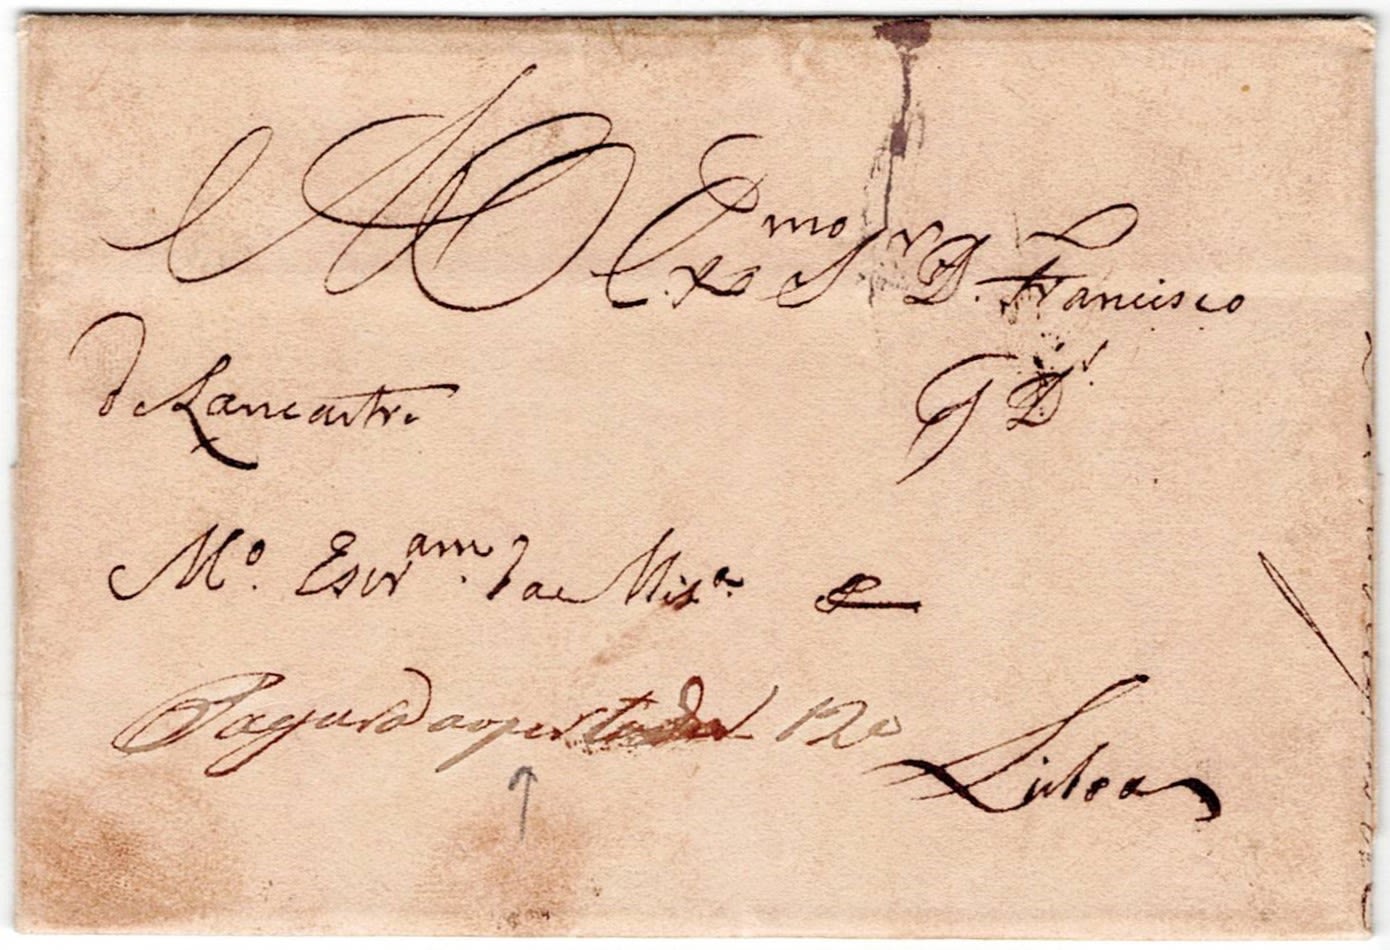 Ao Exmo Sr D. Francisco
de Lancastre G Dr
Mo. Escram. da Misa.
Pagará de aporte 120
Lisboa